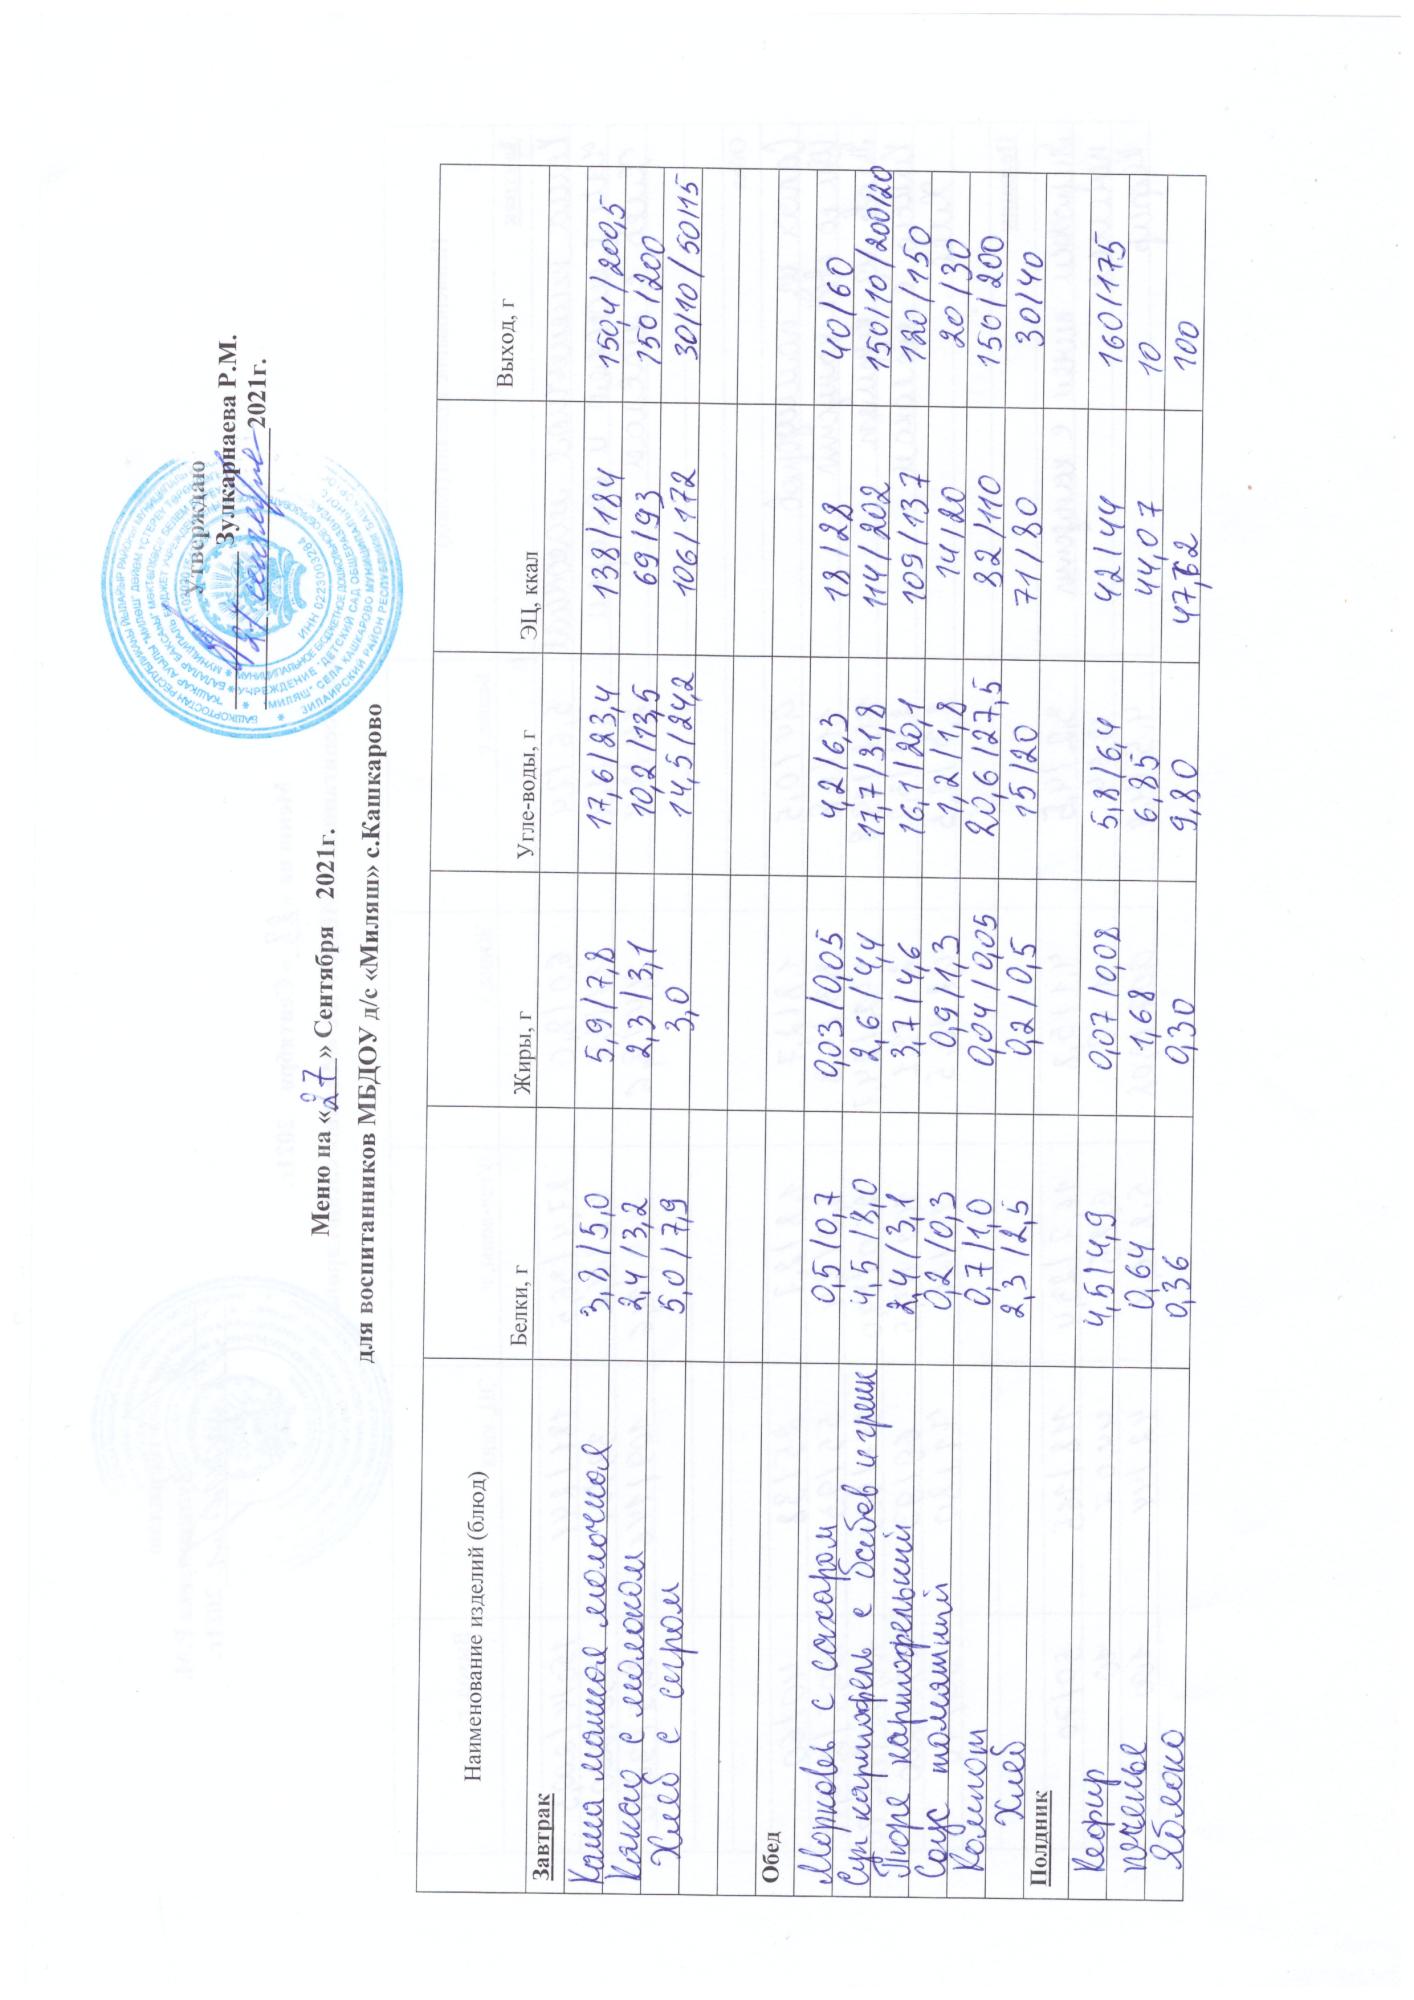 Утверждаю
Зулкарнаева Р.М.
2021г.
ИНН 0223003284
Меню на «27» Сентября 2021г.
для воспитанников МБДОУ д/с «Миляш» с.Кашкарово
Наименование изделий (блюд) Белки, г Жиры, г Угле-воды, г ЭЦ, ккал Выход, г
Завтрак
Каша манная молочная 3,8/5,0 5,9/7,8 17,6/23,4 138/184 150,4/200,5
Какао с молоком 2,4/3,2 2,3/3,1 10,2/13,5 69/93 150/200
Хлеб с сыром 5,0/7,9 3,0 14,5/24,2 106/172 30/10/50/15
Обед
Морковь с сахаром 0,5/0,7 0,03/0,05 4,2/6,3 18/28 40/60
Суп картофель с бобов и гренк 4,5/8,0 2,6/4,4 17,7/31,8 114/202 150/10/200/20
Пюре картофельный 2,4/3,1 3,7/4,6 16,1/20,1 109/137 120/150
Соус томатный 0,2/0,3 0,9/1,3 1,2/1,8 14/20 20/30
Компот 0,7/1,0 0,04/0,05 20,6/27,5 82/110 150/200
Хлеб 2,3/2,5 0,2/0,5 15/20 71/80 30/40
Полдник
Кефир 4,5/4,9 0,07/0,08 5,8/6,4 42/44 160/175
печенье 0,64 1,68 6,85 44,07 10
Яблоко 0,36 0,30 9,80 47,62 100